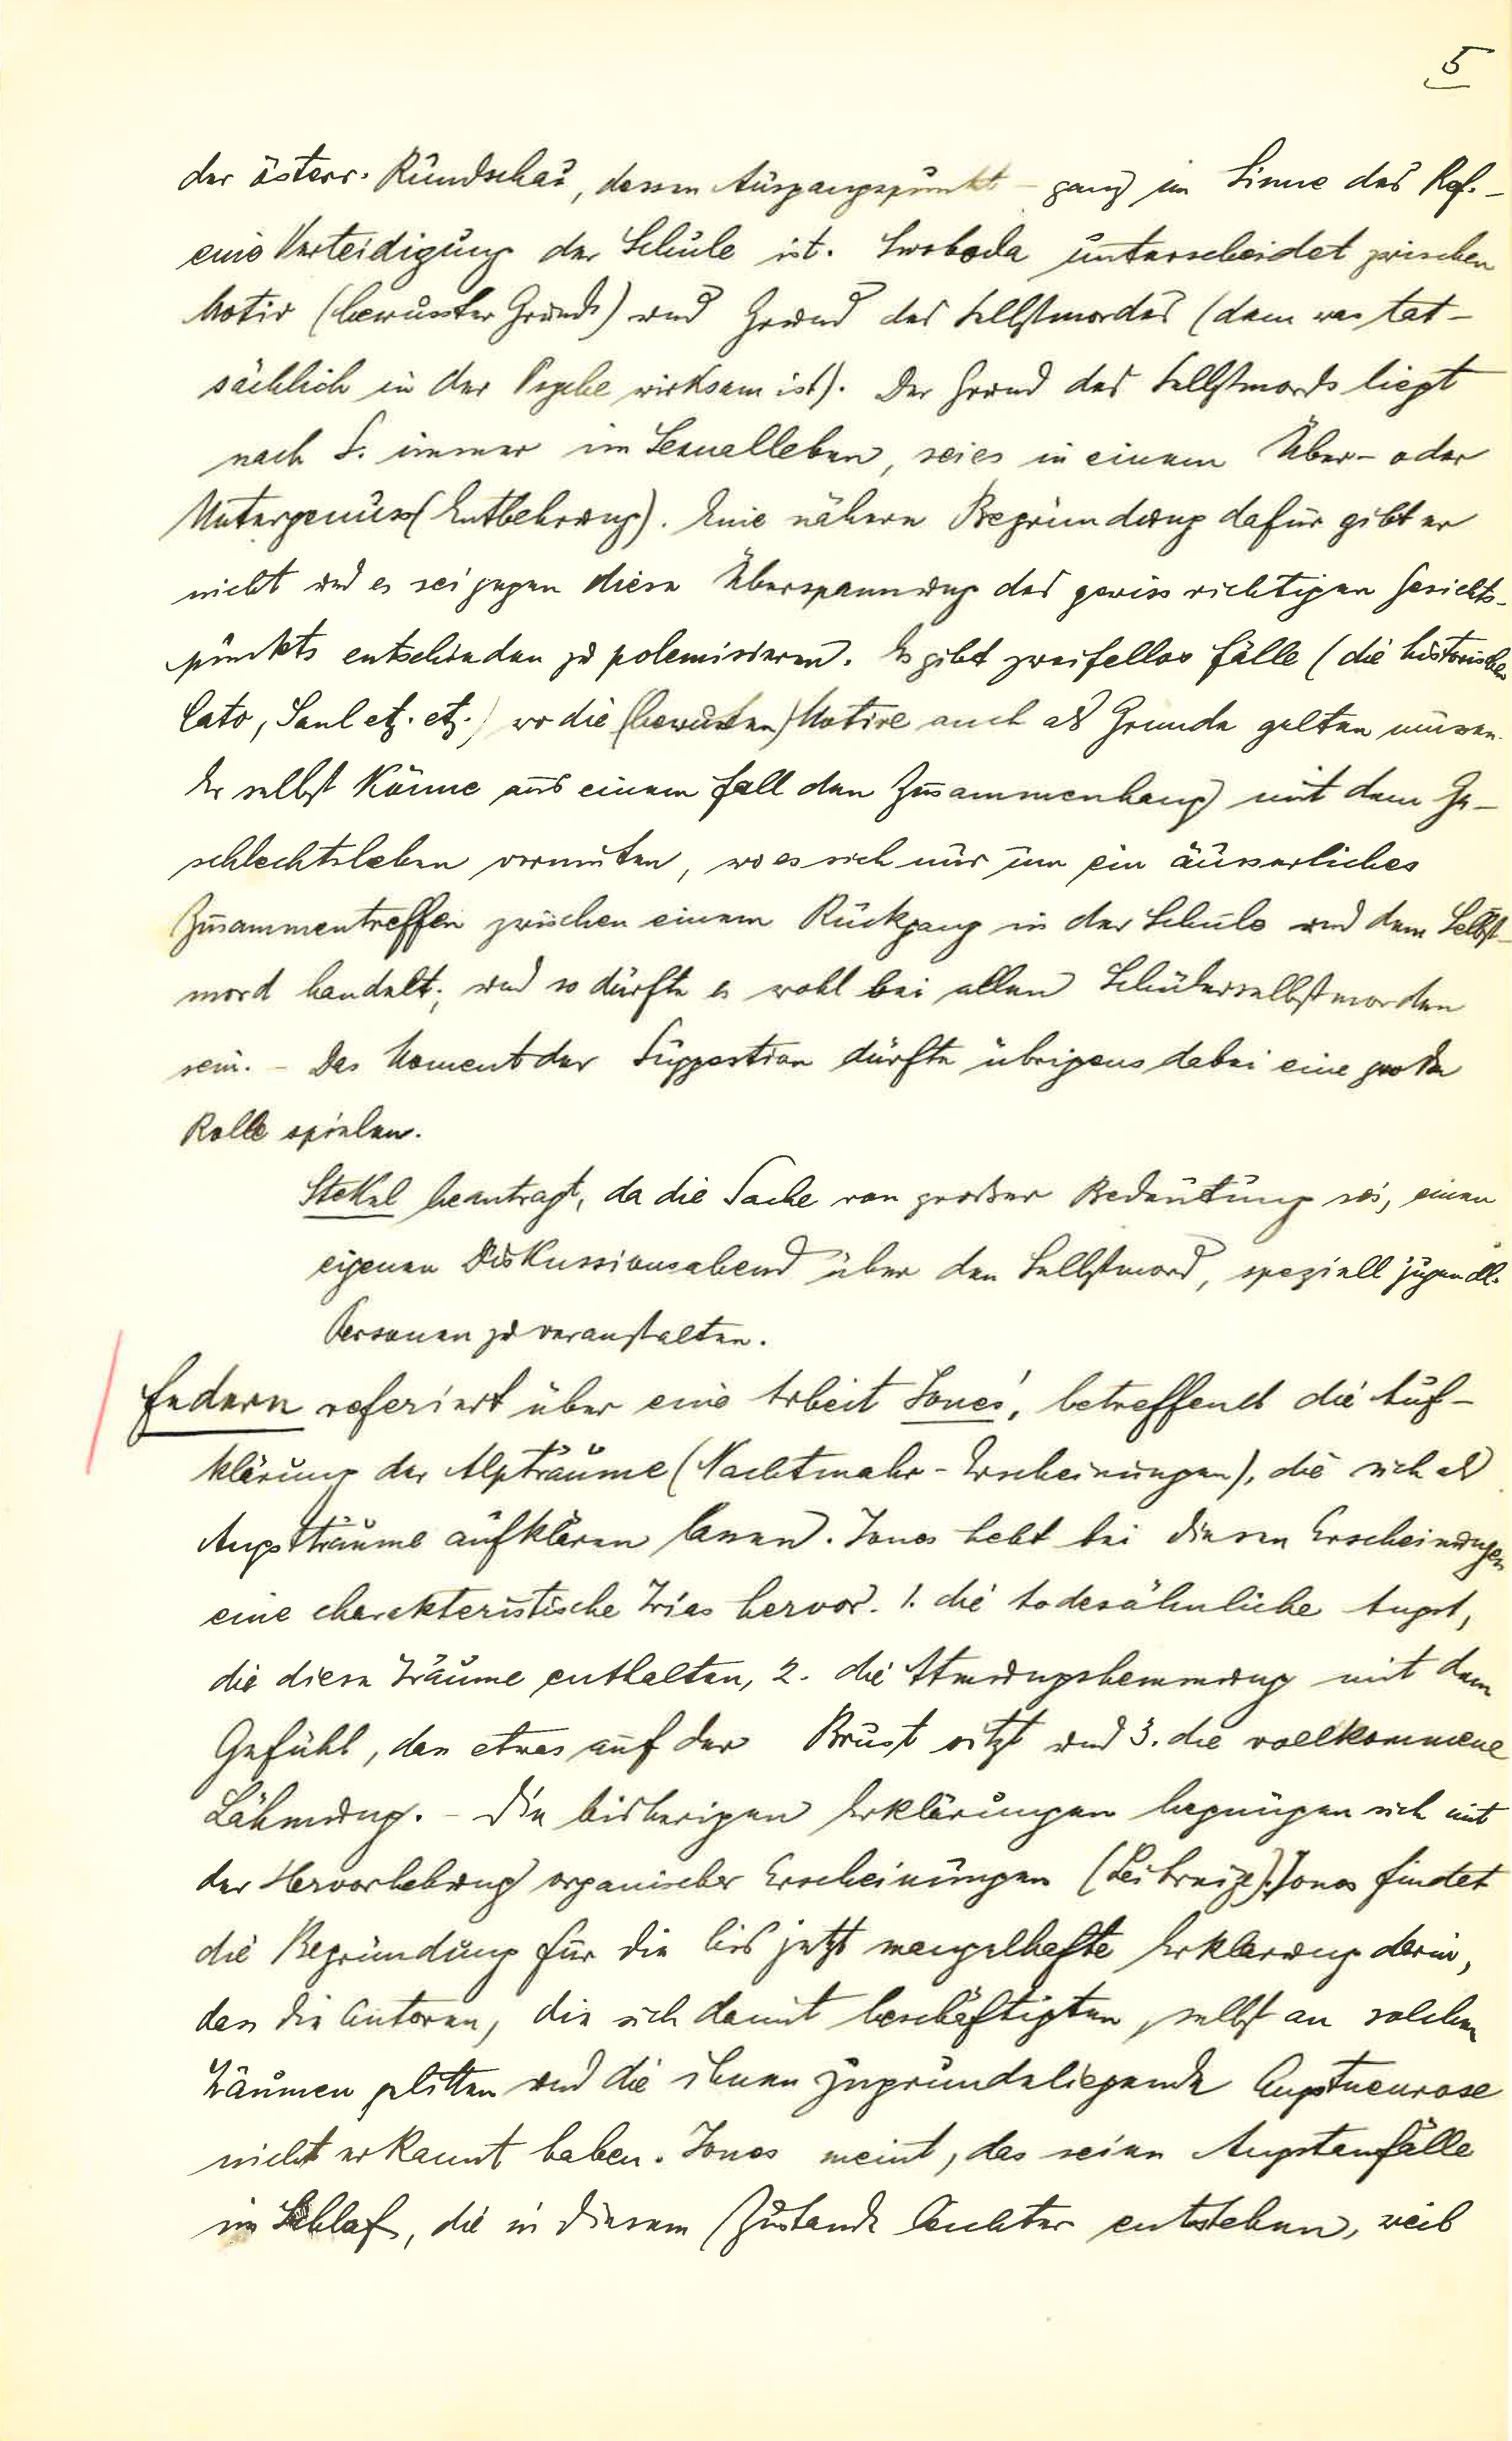 5
der österr. Rundschau, dessen Ausgangspunkt – ganz im Sinne des Ref. –
eine Verteidigung der Schule ist. Swoboda unterscheidet zwischen
Motiv (bewusster Grund) und Grund des Selbstmordes (dem was tat-
sächlich in der Psyche wirksam ist). Der Grund des Selbstmords liegt
nach S. immer im Sexualleben, sei es in einem Über- oder
Untergenuss (Entbehrung). Eine nähere Begründung dafür gibt er
nicht und es sei gegen diese Überspannung des gewiss richtigen Gesichts-
punkts entschieden zu polemisieren. Es gibt zweifellos Fälle (die historischen
Cato, Saul etz. etz.) wo die (bewussten) Motive auch als Grunde gelten müssen.
Er selbst könne aus einem Fall den Zusammenhang mit dem Ge-
schlechtsleben vermuten, wo es sich nur um ein äusserliches
Zusammentreffen zwischen einem Rückgang in der Schule und dem Selbst-
mord handelt; und so dürfte es wohl bei allen Schülerselbstmorden
sein. – Das Moment der Suggestion dürfte übrigens dabei eine große
Rolle spielen.
Stekel beantragt, da die Sache von großer Bedeutung sei, einen
eigenen Diskussionsabend über den Selbstmord, speziell jugendl.
Personen zu veranstalten.
Federn referiert über eine Arbeit Jones', betreffend die Auf-
klärung der Alpträume (Nachtmahr-Erscheinungen), die sich als
Angstträume aufklären lassen. Jones hebt bei diesen Erscheinungen
eine charakteristische Trias hervor. 1. die todesähnliche Angst,
die diese Träume enthalten, 2. die Atmungshemmung mit dem
Gefühl, dass etwas auf der Brust sitzt und 3. die vollkommene
Lähmung. – Die bisherigen Erklärungen begnügen sich mit
der Hervorhebung organischer Erscheinungen (Leibreize). Jones findet
die Begründung für die bis jetzt mangelhafte Erklärung darin,
dass die Autoren, die sich damit beschäftigten, selbst an solchen
Träumen gelitten und die ihnen zugrundeliegende Angstneurose
nicht erkannt haben. Jones meint, das seien Angstanfälle
im Schlaf, die in diesem Zustande leichter entstehen, weil